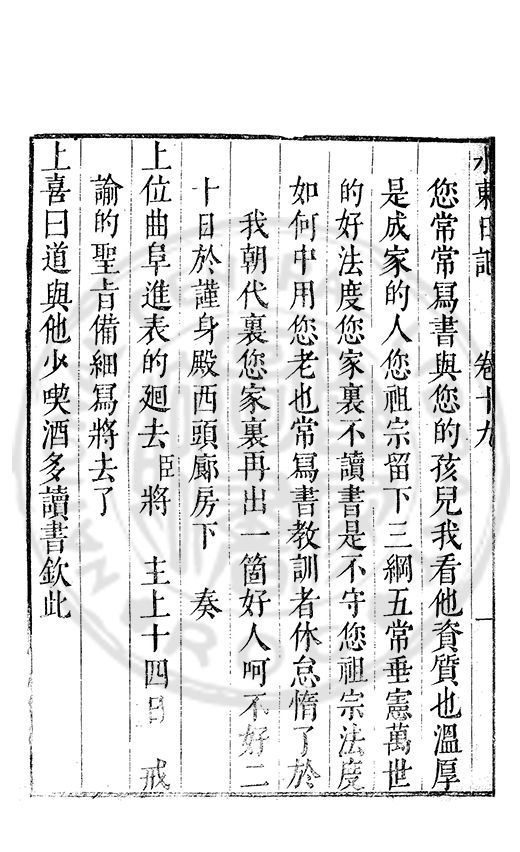 水東日記 卷十九 一
您常常寫書與您的孩兒我看他資質也溫厚
是成家的人您祖宗留下三綱五常垂憲萬世
的好法度您家裏不讀書是不守您祖宗法度
如何中用您老也常寫書教訓者休怠惰了於
我朝代裏您家裏再出一箇好人呵不好二
十日於謹身殿西頭廊房下 奏
上位曲阜進表的廻去臣將 主上十四日 戒
諭的聖旨備細寫將去了
上喜曰道與他少喫酒多讀書欽此